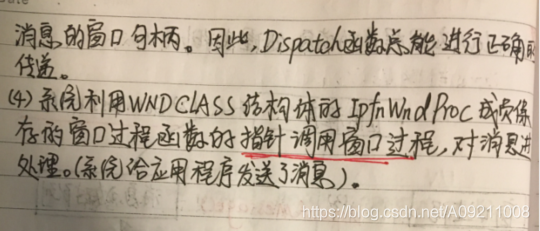 消息的窗口句柄。因此,Dispatch函数总能进行正确的
传递。
(4)系统利用WNDCLASS结构体的lpfnWndProc成员保
存的窗口过程函数的指针调用窗口过程,对消息进
处理。(系统给应用程序发送了消息)。
https://blog.csdn.net/A09211008